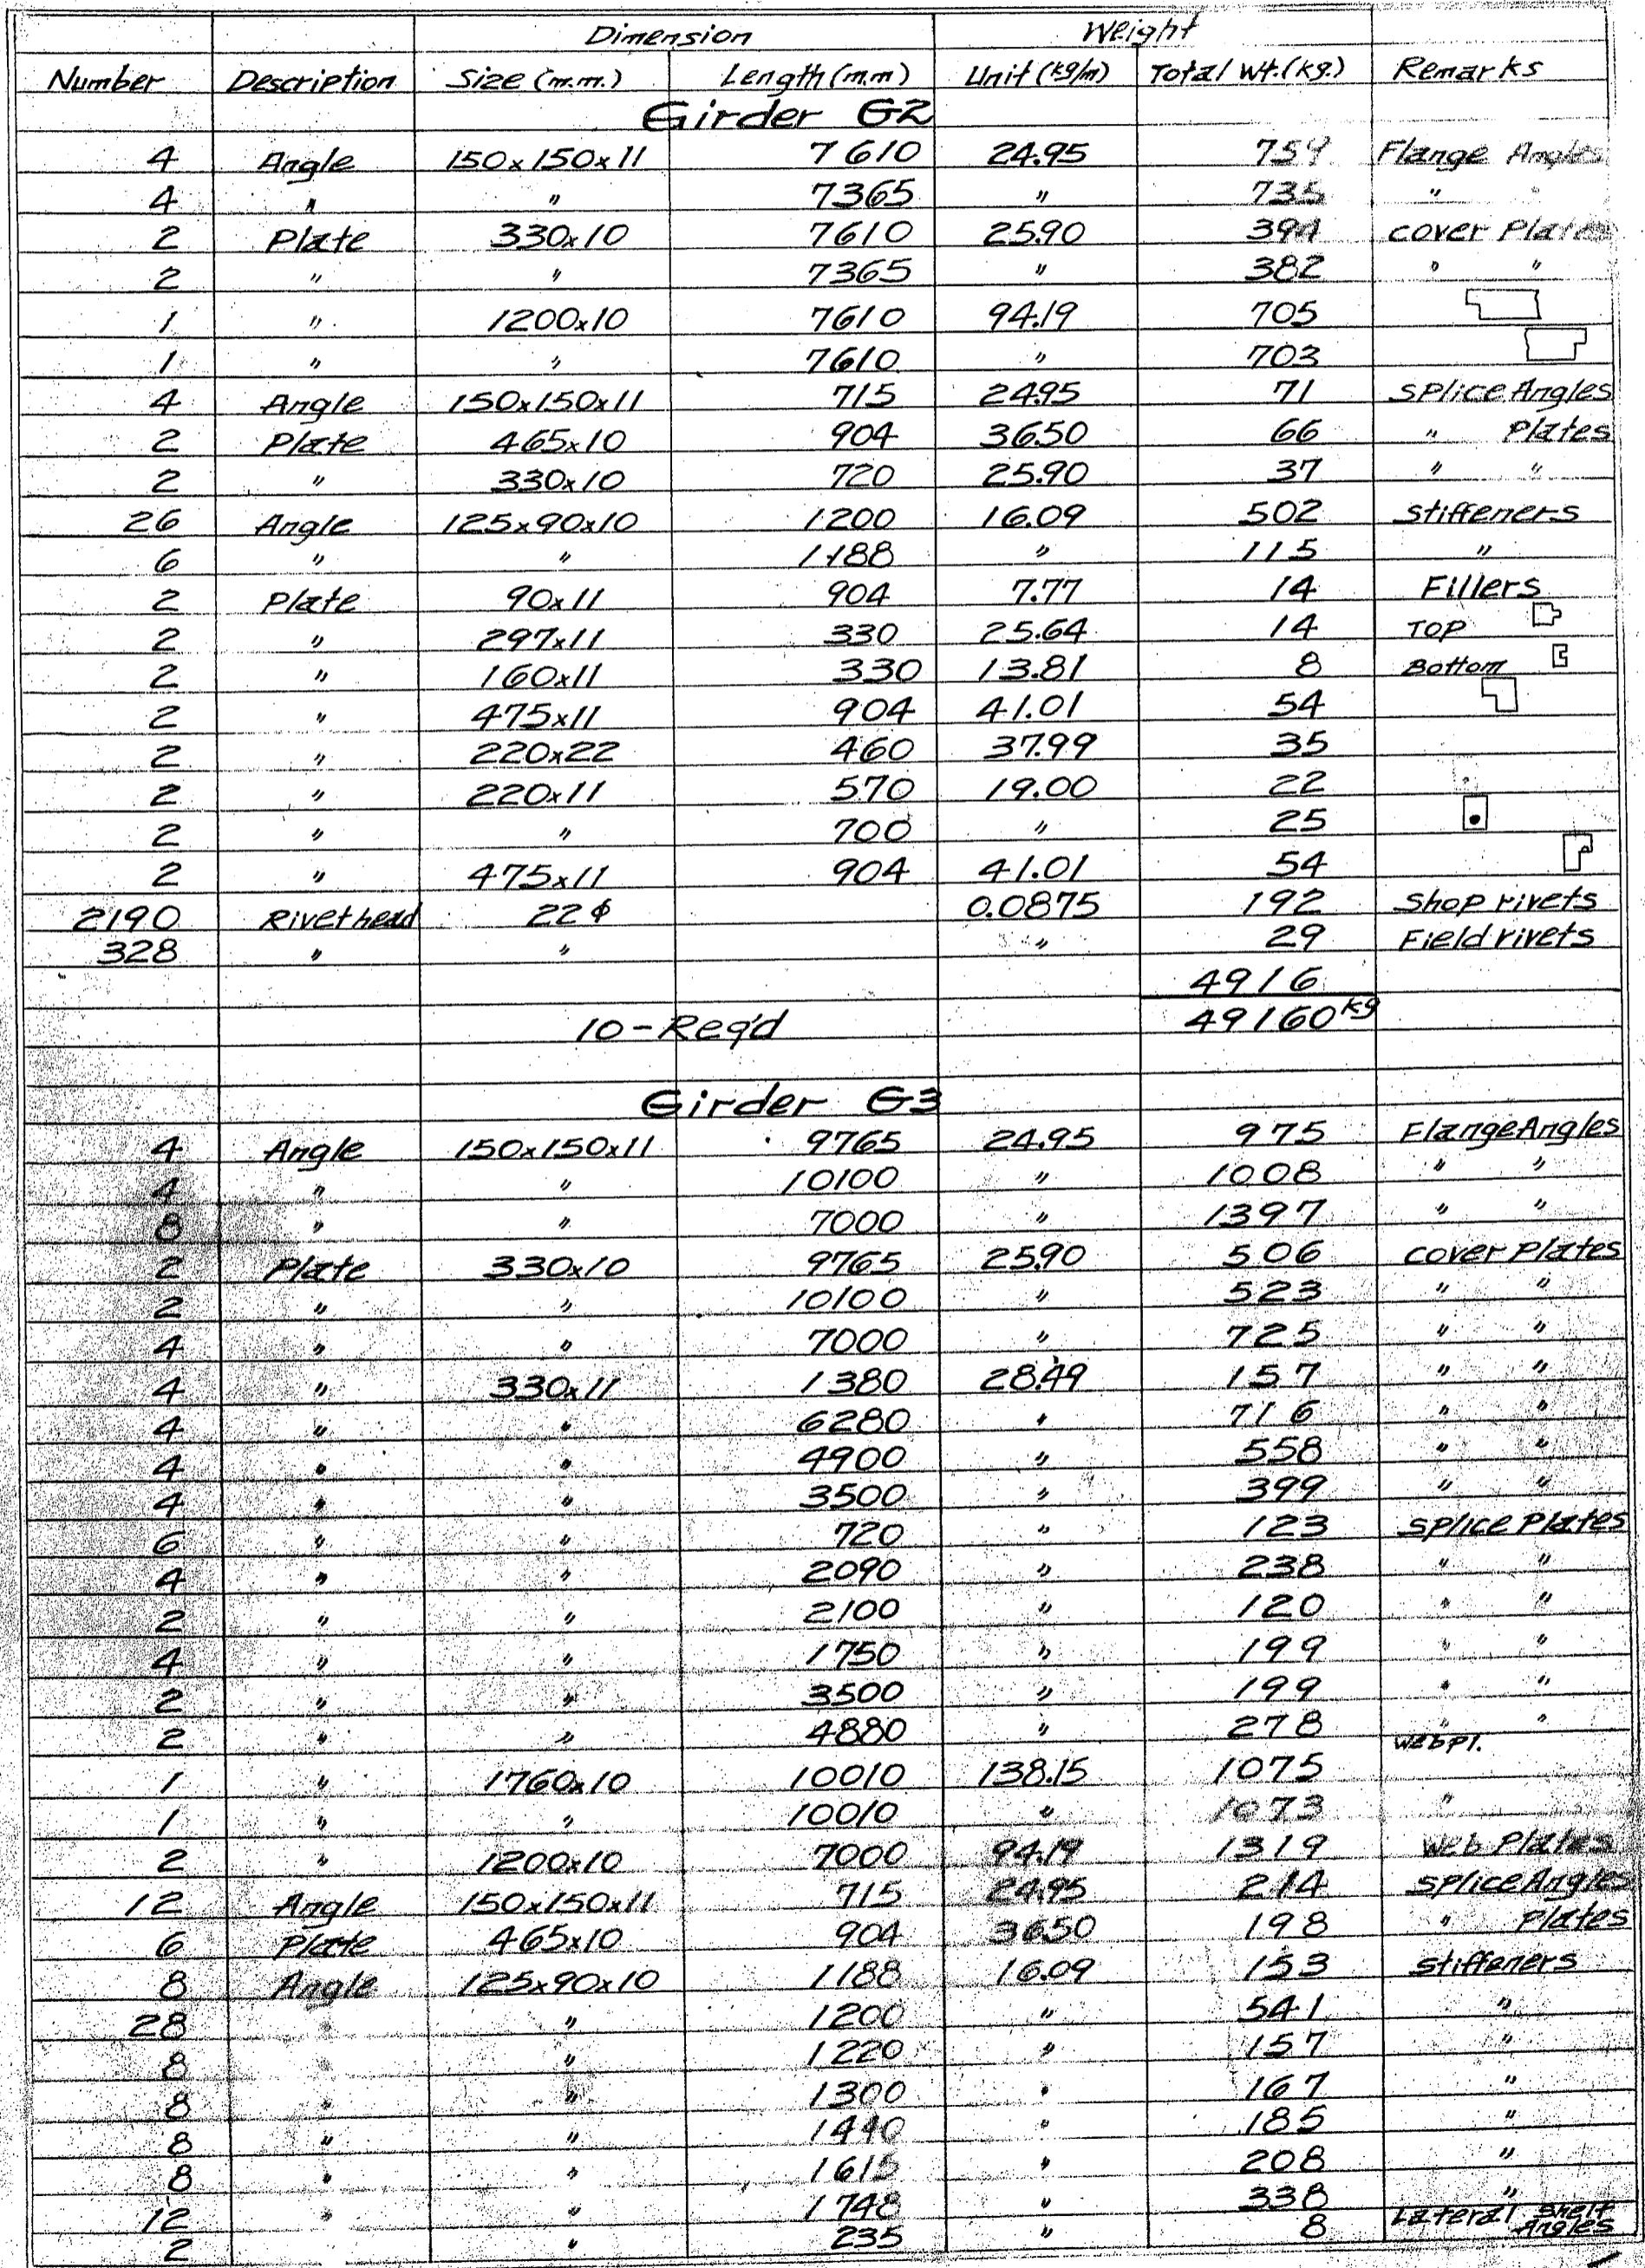 Dimension Weight
Number Description Size (m.m.) Length (m.m) Unit (kg/m) Total Wt. (kg.) Remarks
Girder G2
4 Angle 150x150x11 7610 24.95 759 Flange Angles
4 " " 7365 " 735 " "
2 Plate 330x10 7610 25.90 394 cover Plates
2 " " 7365 " 382 " "
1 " 1200x10 7610 94.19 705
1 " " 7610 " 703
4 Angle 150x150x11 715 24.95 71 splice Angles
2 Plate 465x10 904 36.50 66 " Plates
2 " 330x10 720 25.90 37 " "
26 Angle 125x90x10 1200 16.09 502 stiffeners
6 " " 1188 " 115 "
2 Plate 90x11 904 7.77 14 Fillers
2 " 297x11 330 25.64 14 TOP
2 " 160x11 330 13.81 8 Bottom
2 " 475x11 904 41.01 54
2 " 220x22 460 37.99 35
2 " 220x11 570 19.00 22
2 " " 700 " 25
2 " 475x11 904 41.01 54
2190 Rivet head 22ϕ 0.0875 192 Shop rivets
328 " " " 29 Field rivets
4916
10-Req'd 49160 kg
Girder G3
4 Angle 150x150x11 9765 24.95 975 Flange Angles
4 " " 10100 " 1008 " "
8 " " 7000 " 1397 " "
2 Plate 330x10 9765 25.90 506 cover Plates
2 " " 10100 " 523 " "
4 " " 7000 " 725 " "
4 " 330x11 1380 28.49 157 " "
4 " " 6280 " 716 " "
4 " " 4900 " 558 " "
4 " " 3500 " 399 " "
6 " " 720 " 123 splice Plates
4 " " 2090 " 238 " "
2 " " 2100 " 120 " "
4 " " 1750 " 199 " "
2 " " 3500 " 199 " "
2 " " 4880 " 278 " "
1 " 1760x10 10010 138.15 1075 web pl.
1 " " 10010 " 1073 "
2 " 1200x10 7000 94.19 1319 Web Plates
12 Angle 150x150x11 715 24.95 214 splice Angles
6 Plate 465x10 904 36.50 198 " Plates
8 Angle 125x90x10 1188 16.09 153 stiffeners
28 " " 1200 " 541 "
8 " " 1220 " 157 "
8 " " 1300 " 167 "
8 " " 1440 " 185 "
8 " " 1615 " 208 "
12 " " 1748 " 338 "
2 " 235 " 8 Lateral Shelf Angles